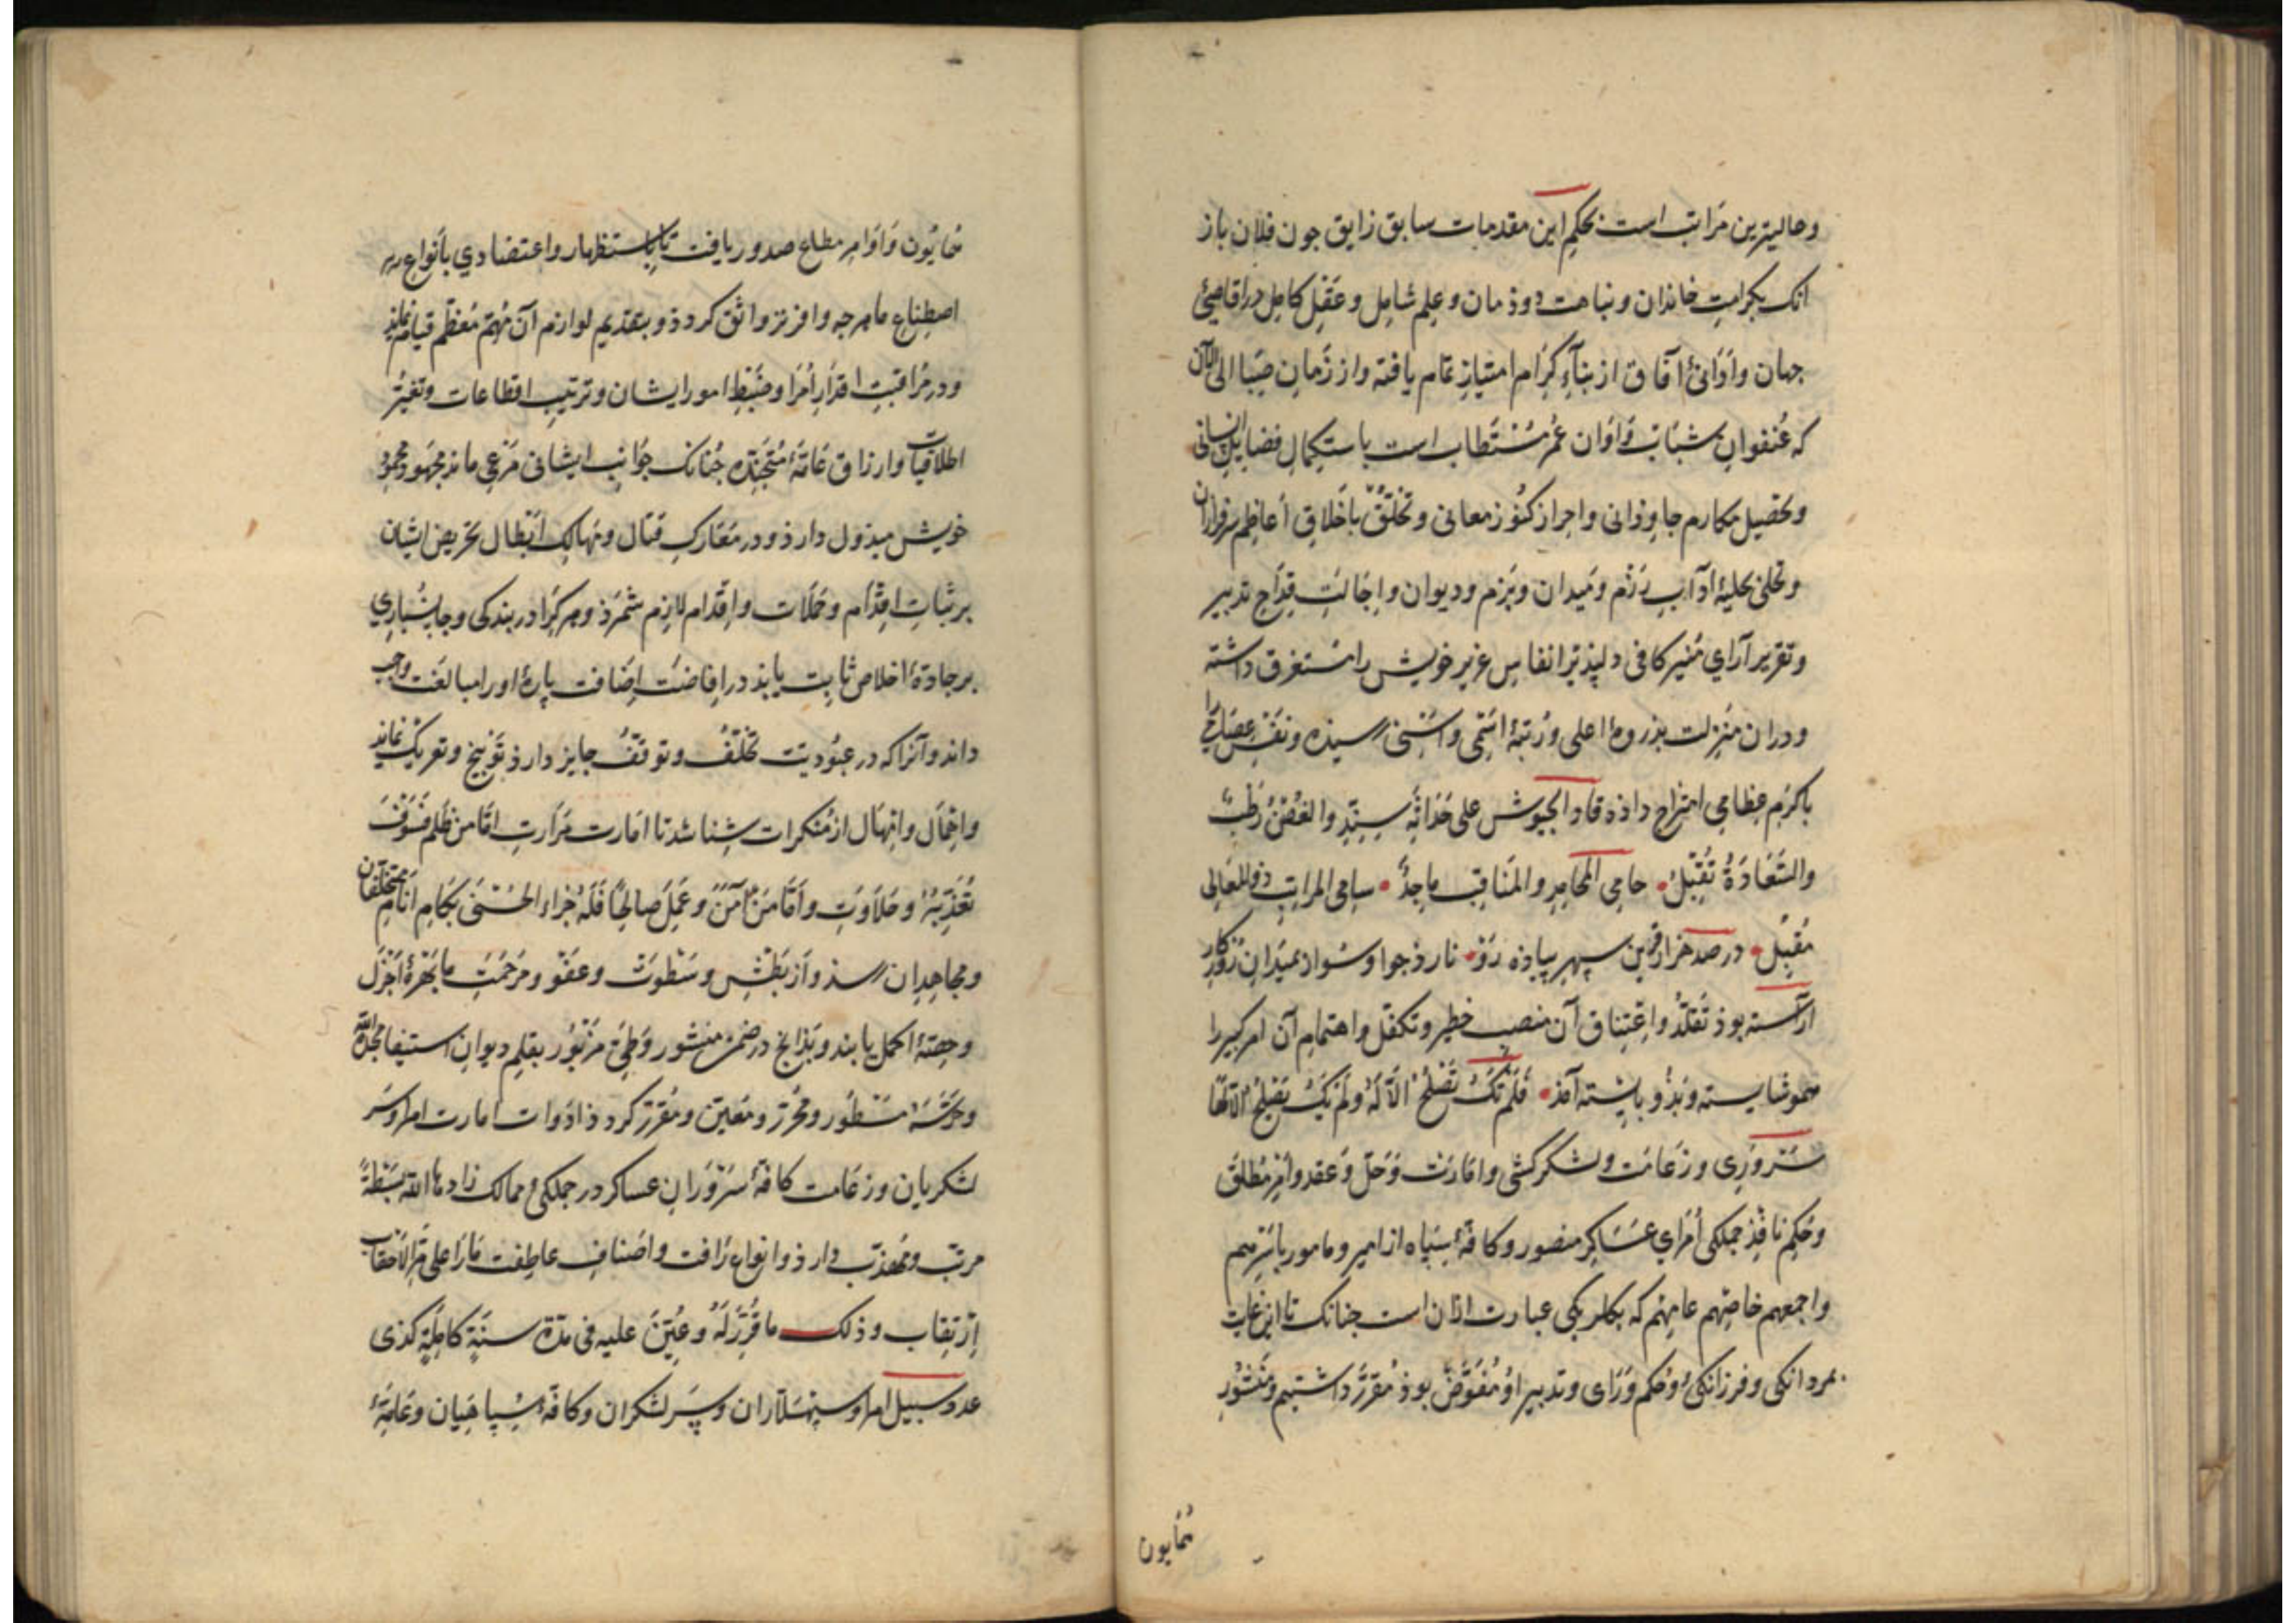 وحالیترین مراتب است بحکم این مقدمات سابق رایق جون فلان باز
انک بکرامت خاندان و نباهت دوذمان و علم شامل و عقل کامل در اقاصیٔ
جهان و ادانیٔ آفاق از بناءِ کرام امتیاز تمام یافته و از زمان صبا الی الآن
که عنفوان شباب و اوان عمر مستطاب است باستکمال فضایل انسانی
و تحصیل مکارم جاوذانی و احراز کنوز معانی و تخلّق باخلاق اعاظم سرفرازان
و تحلی بحلیهٔ آداب رزم و میدان و بزم و دیوان و اجالت قداح تدبیر
و تقریر آرای منیر کافی دلپذیر انفاس عزیز خویش را مستغرق داشته
و دران منزلت بذروهٔ اعلی و رتبهٔ اسمی و اسنی رسیذه و نفس عصامی را
باکرم عظامی امتزاج داذه قاد الجیوش علی حداثة سنه والغصن رطب
والسّعادة تقبل حامی المحامد والمناقب ماجد سامی المراتب ذوالمعالی
مقبل در صد هزار قرن سپهر پیاذه رو نارذ جو او سوار بمیدان روزکار
آراسته بوذ تقلّد و اعتناق آن منصب خطیر و تکفل و اهتمام آن امر کبیر را
همو شایسته و بذو بایسته آمذ فلم تک تصلح الا له ولم یک یصلح الا لها
سروری و زعامت و لشکرکشی و امارت و حلّ و عقد و امر مطلق
و حکم نافذ جملکی امرای عساکر منصور و کافهٔ سپاه از امیر و مامور باسرهم
واجمعهم خاصهم عامهم که بکلربکی عبارت ازان است جنانک تا این غایت
بمردانکی و فرزانکی و حکم و رای و تدبیر او مفوّض بوذ مقرّر داشتیم و منشور
همایون
همایون و اوامر مطاع صدور یافت تا باستظهار و اعتضادی بانواع
اصطناع ما هرجه وافرتر واثق کردذ و بتقدیم لوازم آن مهمّ معظّم قیام نمایذ
و در مراقبت اقدار امرا و ضبط امور ایشان و ترتیب اقطاعات و تغیّر
اطلاقیات و ارزاق عامّهٔ متجنّده جنانک جوانب ایشانی مرعی مانذ مجهود
خویش مبذول دارذ و در معارک قتال و مهالک ابطال تحریض ایشان
بر ثبات اقدام و حملات و اقدام لازم شمرذ و هرکرا در بندکی و جانسباری
بر جادهٔ اخلاص ثابت یابذ در افاضت اضافت بارهٔ او را مبالغت واجب
داند و آنرا که در عبودیت تخلّف و توقف جایز دارذ توبیخ و تعریک نماید
و اخمال و امهال از منکرات شناسد تا امارت مرارت امّا من ظلم فسوف
نعذّبه و حلاوت و امّا من آمن و عمل صالحا فله جزاء الحسنی بکام انام متخلفان
و مجاهدان رسذ و از بطش و سطوت و عفو و مرحمت ما بهرهٔ اجزل
و حصهٔ اکمل یابند و بذانج در ضمن منشور و طیّ مزبور بقلم دیوان استیفا
مسطور و محرّر و معیّن و مقرّر کردذ اذوات امارت امرا و سر
لشکریان و زعامت کافهٔ سروران عساکر در جملکی ممالک زادها الله بسطة
مرتّب و مهذّب دارذ و انواع رافت و اصناف عاطفت مارا علی مرّ الاحقاب
ارتقاب و ذلک ما قرّر له و عیّن علیه فی مدّة سنة کاملة کذی
عدد سبیل امرا و سپهسلاران و سر لشکران و کافهٔ سپاهیان و عامّهٔ